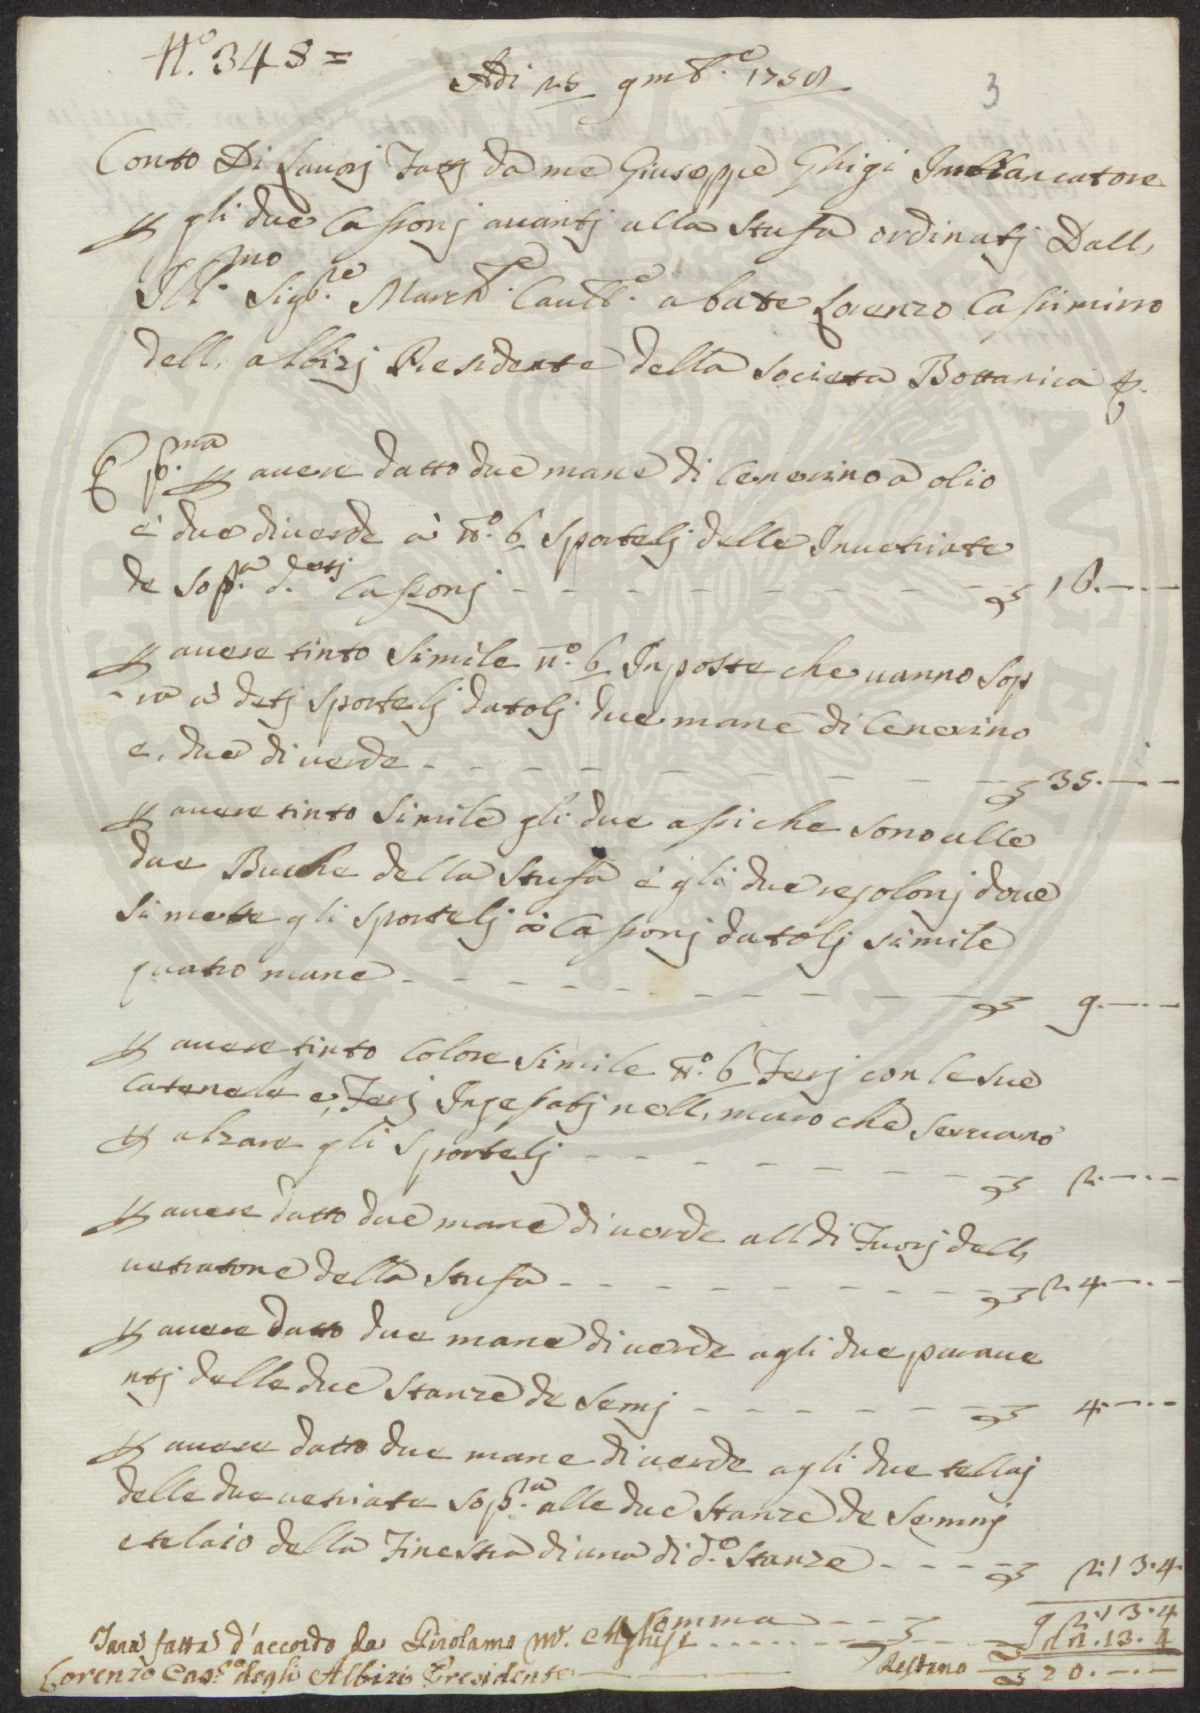 N.º 348 =
Adi 25 9mb.e 1758
3
Conto Di Lauorj Fattj da me Giuseppe Ghigi Inbiancatore
p gli due Cassonj auantj alla stufa ordinatj Dall,
Ill.mo Sig.re March.e Cau.re abate Lorenzo Cassimirro
dell, albizj Residente della Societa Bottanica &.
E p.ma p auere datto due mane di Cenerino a olio
e due di uerde à N.º 6 sportelj delle Inuetriate
de sop.a d.ettj Cassonj - - - - - - - - 16.—.—
p auere tinto simile n.º 6 Inposte che uanno sop
-ra à detj sportelj datolj due mane di Cenerino
e, due di uerde - - - - - - - - - 35.—.—
p auere tinto simile gli due assi che sono alle
due Buche della stufa e gli due regolonj doue
si mette gli sportelj à Cassonj datolj simile
quatro mane - - - - - - - - - 9.—.—
p auere tinto Colore simile N.º 6 Ferj con le sue
Catenele e, Ferj Ingessatj nell, muro che seruano
p alzare gli sportelj - - - - - - - 2.—.—
p auere datto due mane di uerde all di Fuorj dell,
uetratone della stufa - - - - - - - 24.—.—
p auere datto due mane di uerde agli due paraue
ntj delle due stanze de semj - - - - - - 4.—.—
p auere datto due mane di uerde agli due tellaj
delle due uetriate sop.a alle due stanze de semmj
e telaio della Finestra di una di d.e stanze - - - - 2.13.4.
Somma - - - 92.13.4
Tara fatta d'accordo da Girolamo M.ª . . . . . . . 13.4
Lorenzo Cas.º degli Albizi Presidente Restano 20.—.—